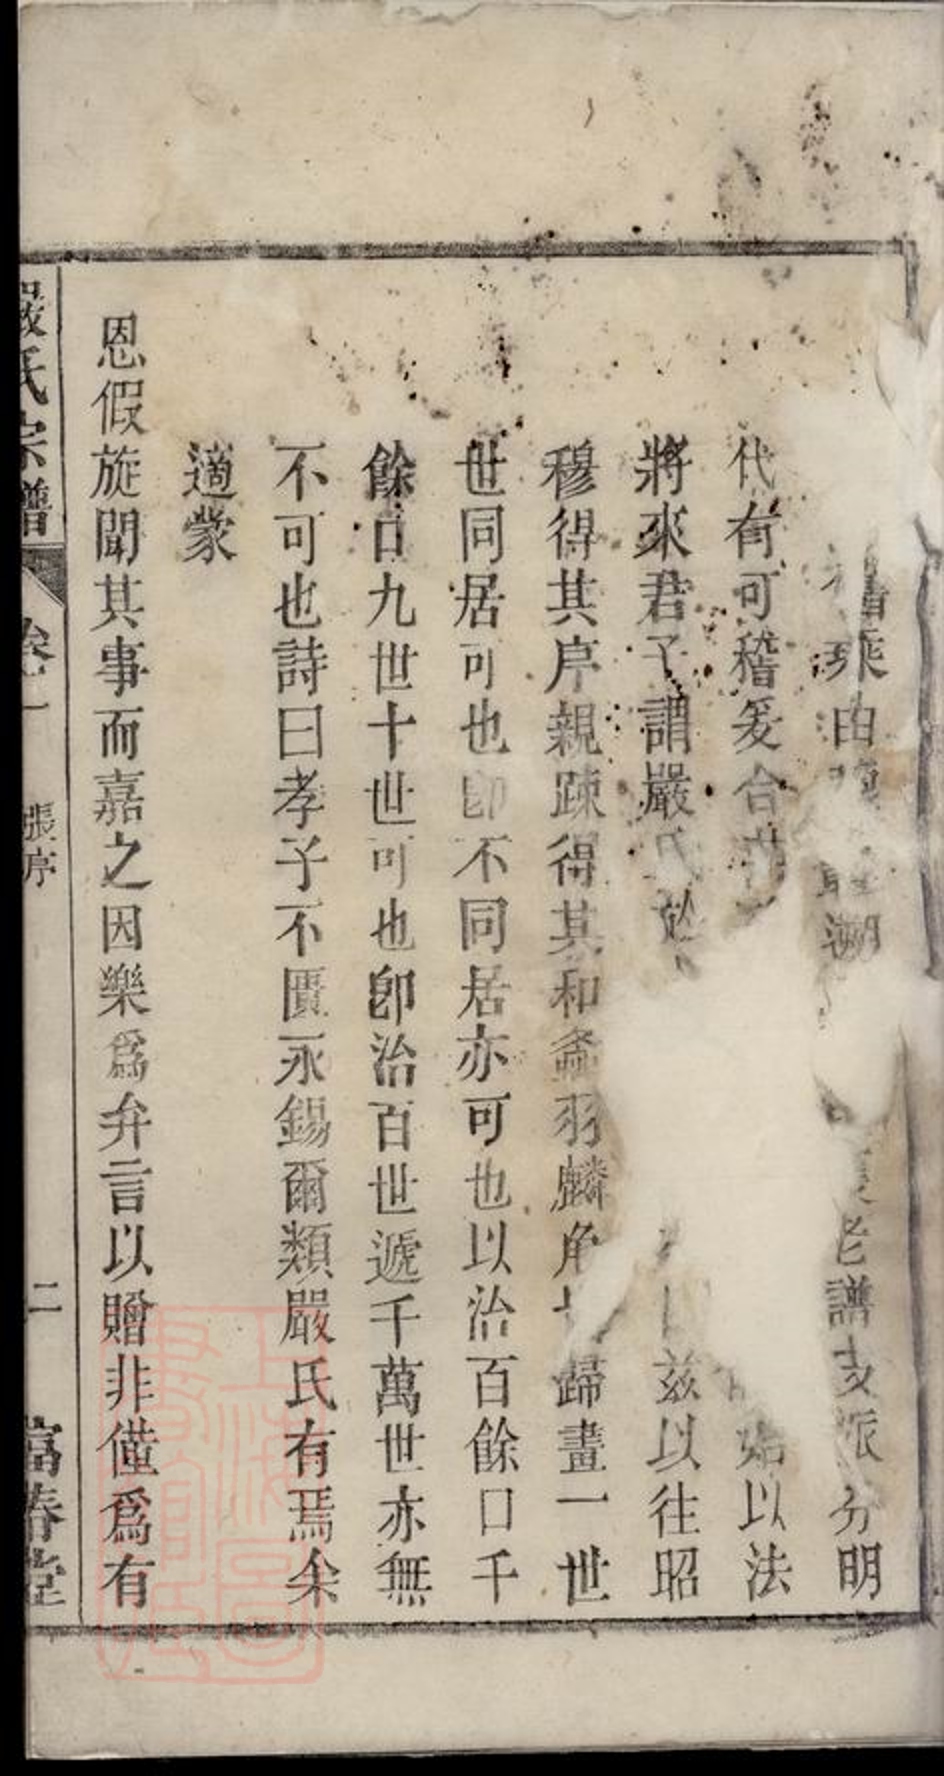 乘由溯老譜支派分明
代有可稽爰合始以法
將來君子謂嚴氏兹以往昭
穆得其序親疎得其和螽羽麟角歸畫一世
世同居可也卽不同居亦可也以治百餘口千
餘口九世十世可也卽治百世遞千萬世亦無
不可也詩曰孝子不匱永錫爾類嚴氏有焉余
適蒙
恩假旋聞其事而嘉之因樂爲弁言以贈非僅爲有
嚴氏宗譜 卷一 張序 二 富春堂
上海圖書館藏